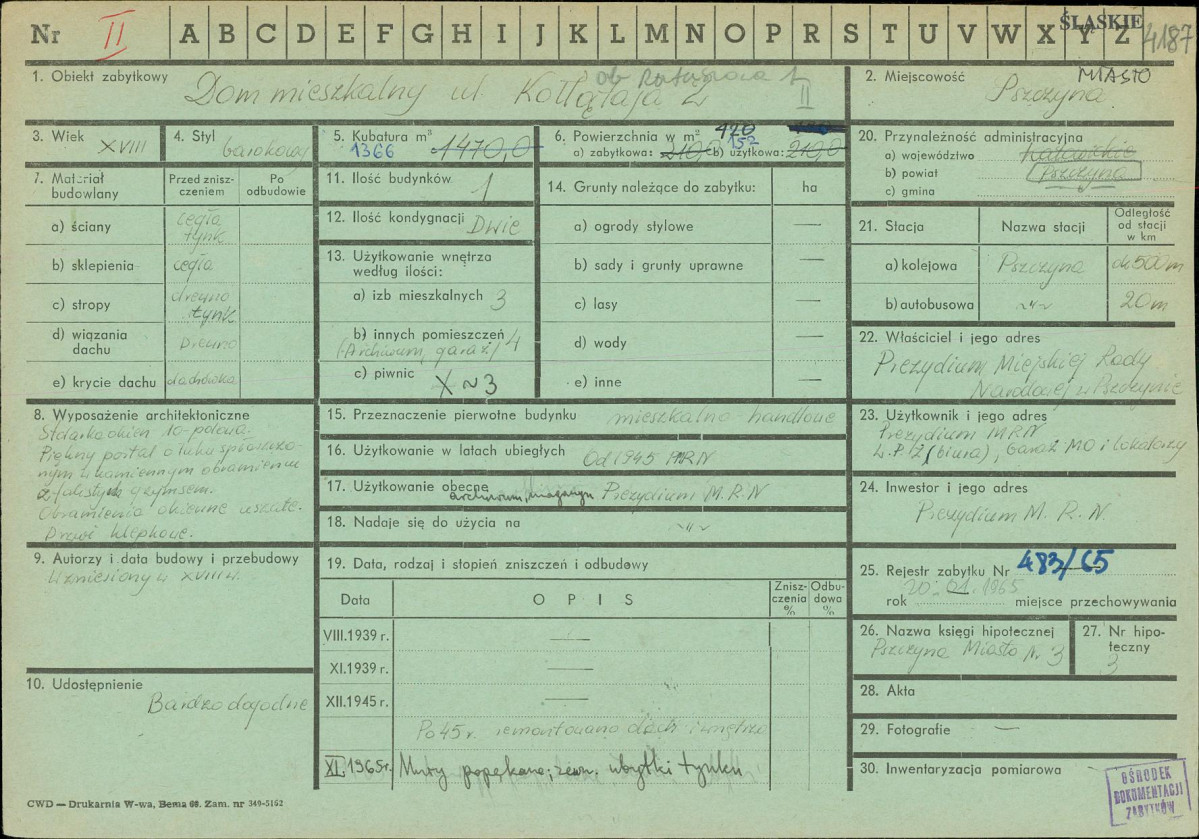 Nr II A B C D E F G H I J K L M N O P R S T U V W X Y Z ŚLĄSKIE 4187
1. Obiekt zabytkowy Dom mieszkalny ul. Kołłątaja 2
ob. Ratuszowa 1
II
2. Miejscowość MIASTO
Pszczyna
3. Wiek XVIII
4. Styl barokowy
5. Kubatura m³
1366 1470,0
6. Powierzchnia w m² 470
a) zabytkowa: 210,0 b) użytkowa: 210,0
152
20. Przynależność administracyjna
a) województwo Katowickie
b) powiat Pszczyna
c) gmina
7. Materiał budowlany
Przed zniszczeniem
Po odbudowie
a) ściany cegła tynk
b) sklepienia cegła
c) stropy drewno tynk
d) wiązania dachu Drewno
e) krycie dachu dachówka
11. Ilość budynków 1
12. Ilość kondygnacji Dwie
13. Użytkowanie wnętrza według ilości:
a) izb mieszkalnych 3
b) innych pomieszczeń
(Archiwum, garaż) 4
c) piwnic X ~ 3
14. Grunty należące do zabytku: ha
a) ogrody stylowe —
b) sady i grunty uprawne —
c) lasy —
d) wody —
e) inne —
21. Stacja
Nazwa stacji
Odległość od stacji w km
a) kolejowa Pszczyna ok 500 m
b) autobusowa -"- 20 m
22. Właściciel i jego adres
Prezydium Miejskiej Rady
Narodowej w Pszczynie
8. Wyposażenie architektoniczne
Stolarka okien 10-polowa.
Piękny portal o łuku spłaszczo-
nym w kamiennym obramieniu
z falistym gzymsem.
Obramienia okienne uszate.
Drzwi klepkowe.
15. Przeznaczenie pierwotne budynku mieszkalno handlowe
16. Użytkowanie w latach ubiegłych Od 1945 MRN
17. Użytkowanie obecne archiwum, magazyn Prezydium M.R.N
18. Nadaje się do użycia na -"-
23. Użytkownik i jego adres
Prezydium MRN
(biura), Garaż MO i lokatorzy
24. Inwestor i jego adres
Prezydium M. R. N.
9. Autorzy i data budowy i przebudowy
Wzniesiony w XVIII w.
19. Data, rodzaj i stopień zniszczeń i odbudowy
Data
O P I S
Zniszczenia %
Odbudowa %
VIII.1939 r. —
XI.1939 r. —
XII.1945 r. —
Po 45 r. remontowano dach i wnętrza
XI 1965 r. Mury popękane; zewn. ubytki tynku
25. Rejestr zabytku Nr 483/65
20. 01. 1965
rok miejsce przechowywania
26. Nazwa księgi hipotecznej
Pszczyna Miasto Nr 3
27. Nr hipoteczny
3
10. Udostępnienie
Bardzo dogodne
28. Akta
29. Fotografie —
30. Inwentaryzacja pomiarowa
OŚRODEK
DOKUMENTACJI
ZABYTKÓW
CWD — Drukarnia W-wa, Bema 60. Zam. nr 340-5162